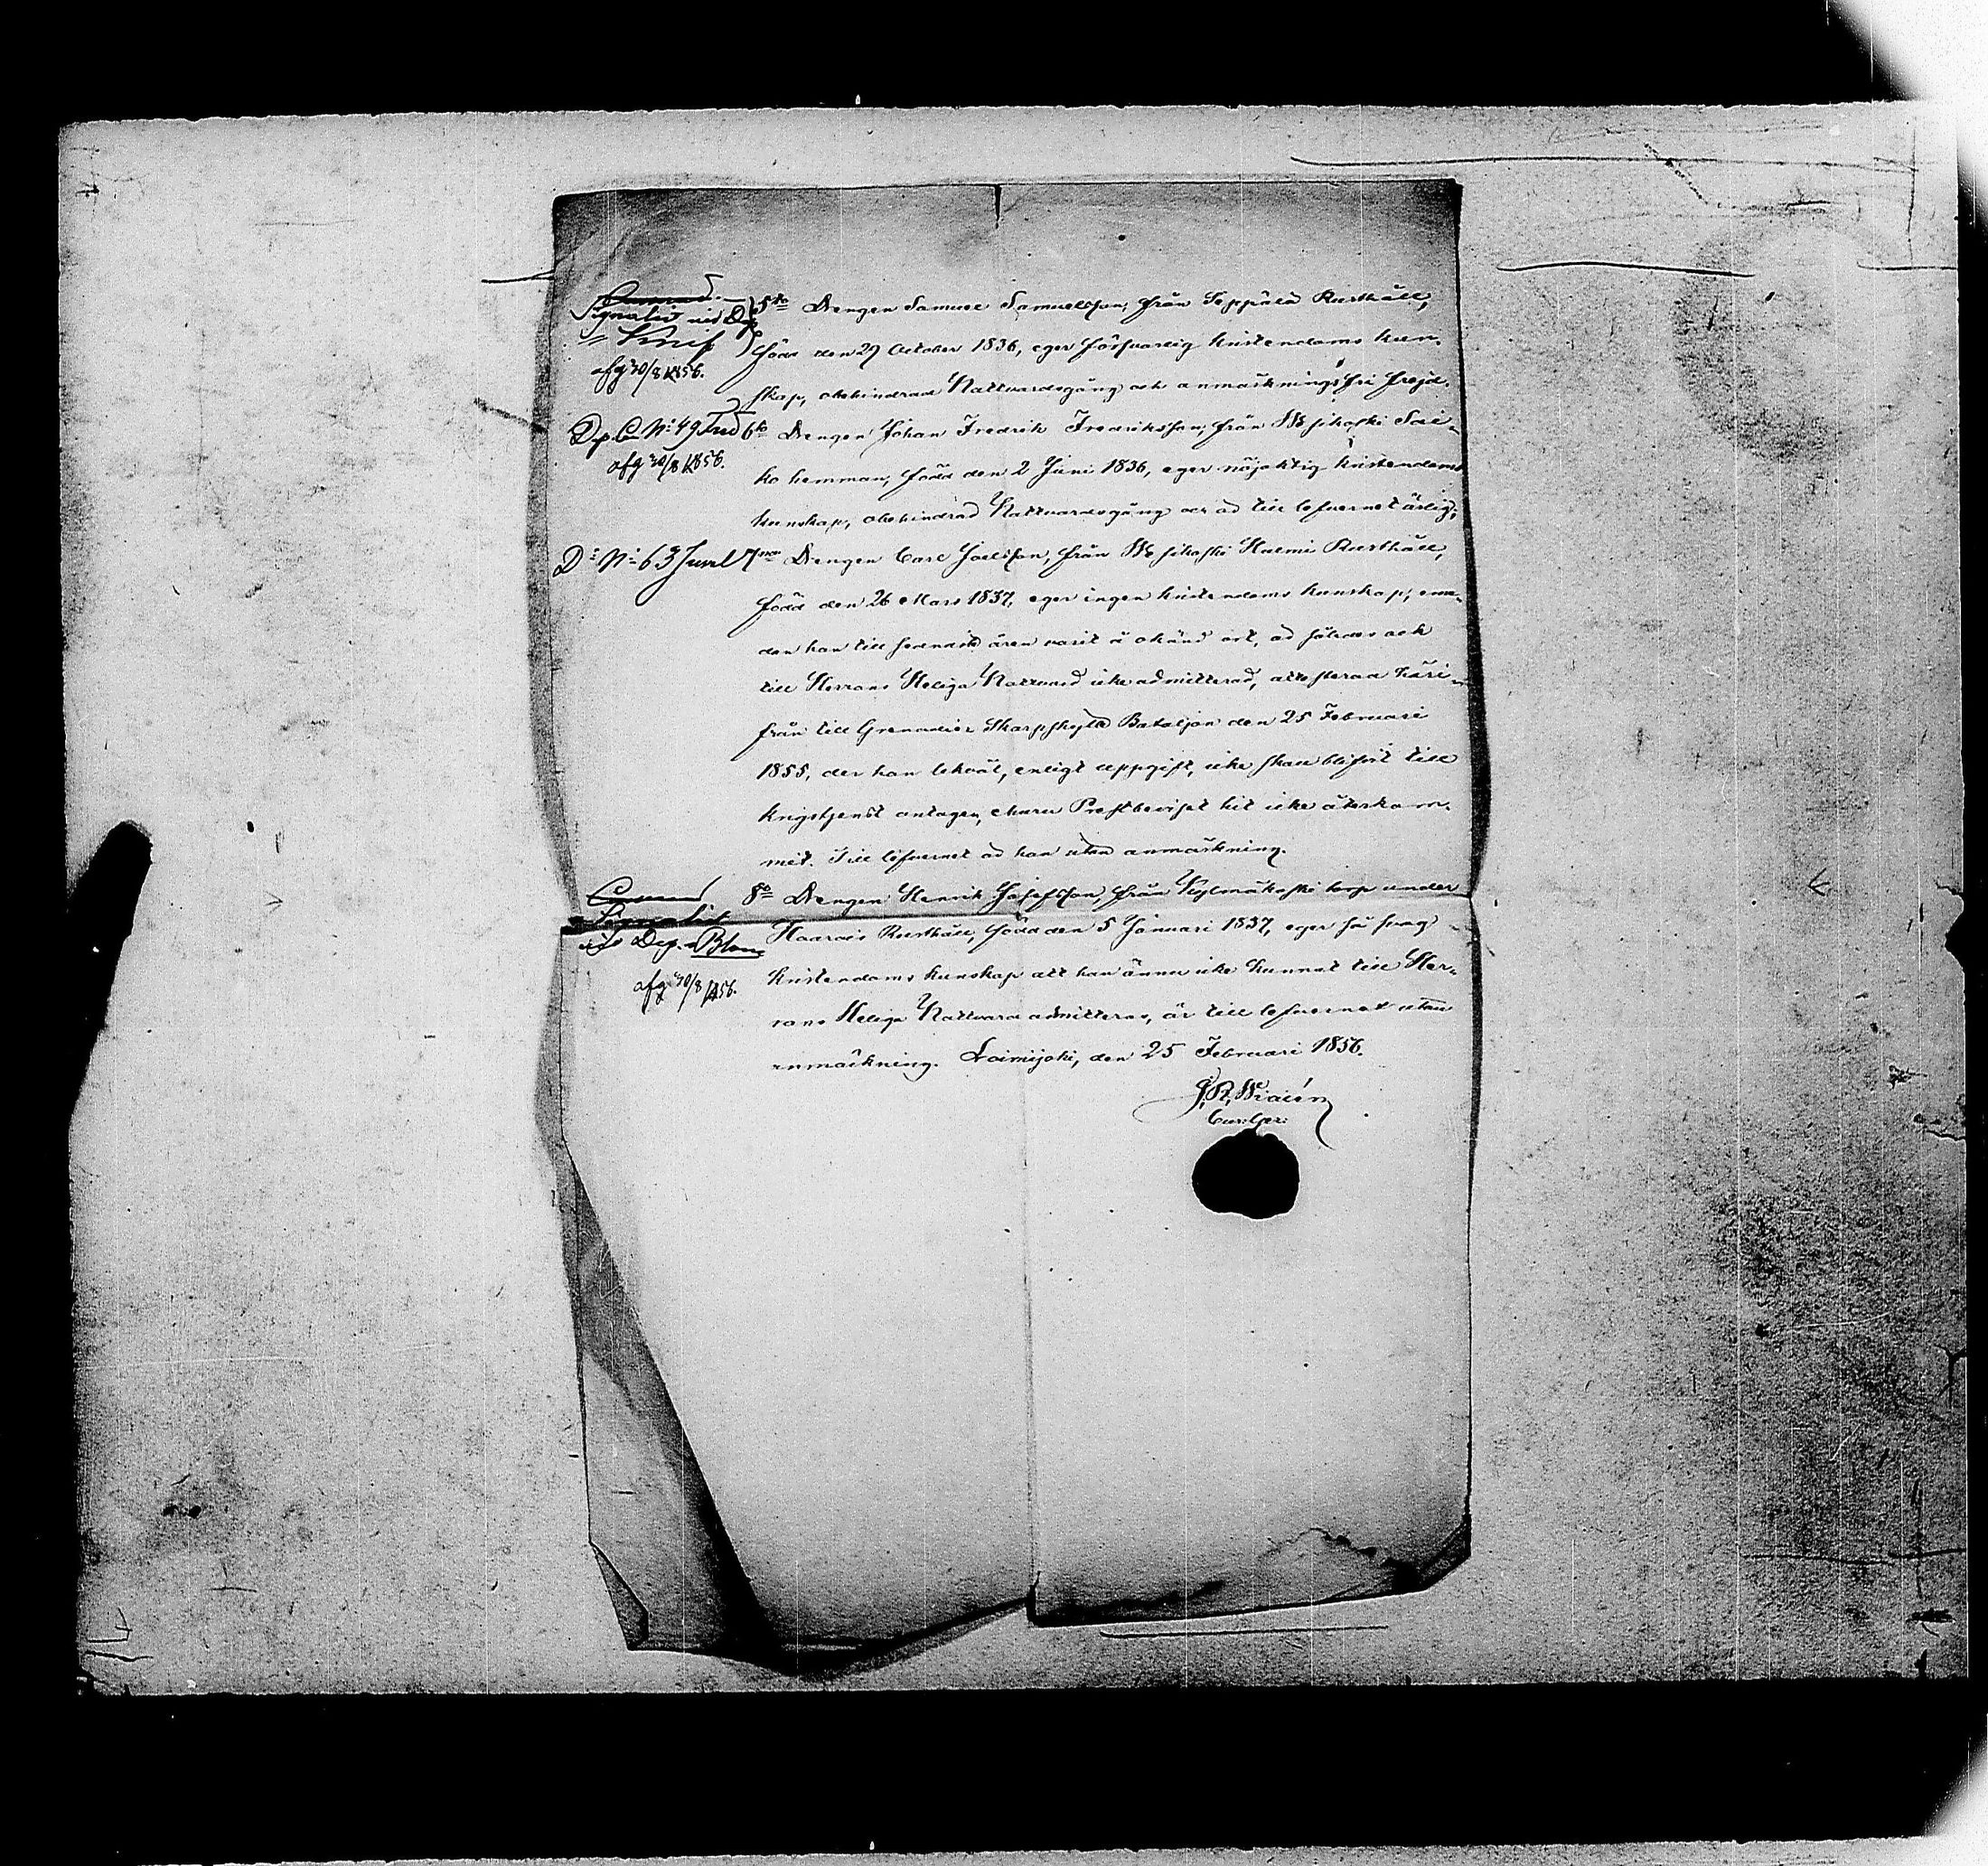 Signalist vid Dep
Knif
afg 30/8 1856.
5to Drengen Samuel Samuelsson, från Seppälä Rusthåll,
född den 29 October 1836, eger försvarlig kristendoms kun-
skap, obehindrad Nattvardsgång och anmärkningsfri frejd.
Dp C. No: 49
afg 30/8 1856.
6to Drengen Johan Fredrik Fredriksson, från Wesikoski Sai-
ko hemman, född den 2 Juni 1836, eger nöjaktig kristendoms
kunskap, obehindrad Nattvardsgång och är till lefvernet ärlig;
Do No: 63 Juvel
7mo Drengen Carl Joelsson, från Wesikoski Hulmi Rusthåll,
född den 26 Mars 1837, eger ingen kristendoms kunskap, eme-
dan han till sednaste åren varit å okänd ort, är således ock
till Herrans Heliga Nattvard icke admitterad, attesterad häri-
från till Grenadier Skarpskytte Bataljon den 25 Februari
1855, der han likväl, enligt uppgift, icke skall blifvit till
krigstjenst antagen, churu Prestbeviset hit icke återkom-
mit. Till lefvernet är han utan anmärkning.
Signalist
vid Dep. Blom
afg 30/8 1856.
8o Drengen Henrik Josefsson, från torp under
Haarois Rusthåll, född den 5 Januari 1837, eger så svag
kristendoms kunskap att han ännu icke kunnat till Her-
rans Heliga Nattvard admitteras, är till lefvernet utan
anmärkning. Loimijoki, den 25 Februari 1856.